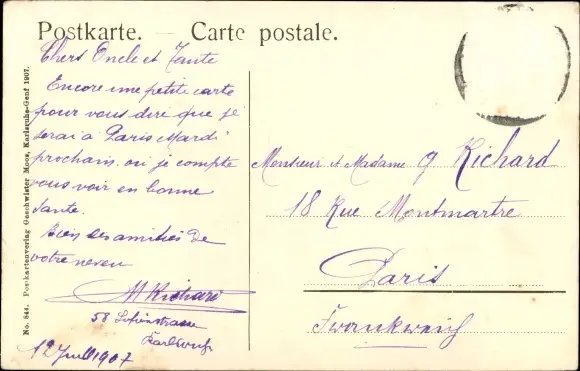 Postkarte. — Carte postale.
Chers Oncle et Tante
Encore une petite carte
pour vous dire que je
serai à Paris Mardi
prochain où je compte
vous voir en bonne
santé.
Bien des amitiés de
votre neveu
M Richard
58 Sofienstrasse
Karlsruhe
12 Juill 1907
Monsieur et Madame J Richard
18 Rue Montmartre
Paris
Frankreich
No. 844. Postkartenverlag Geschwister Moos, Karlsruhe-Genf 1907.